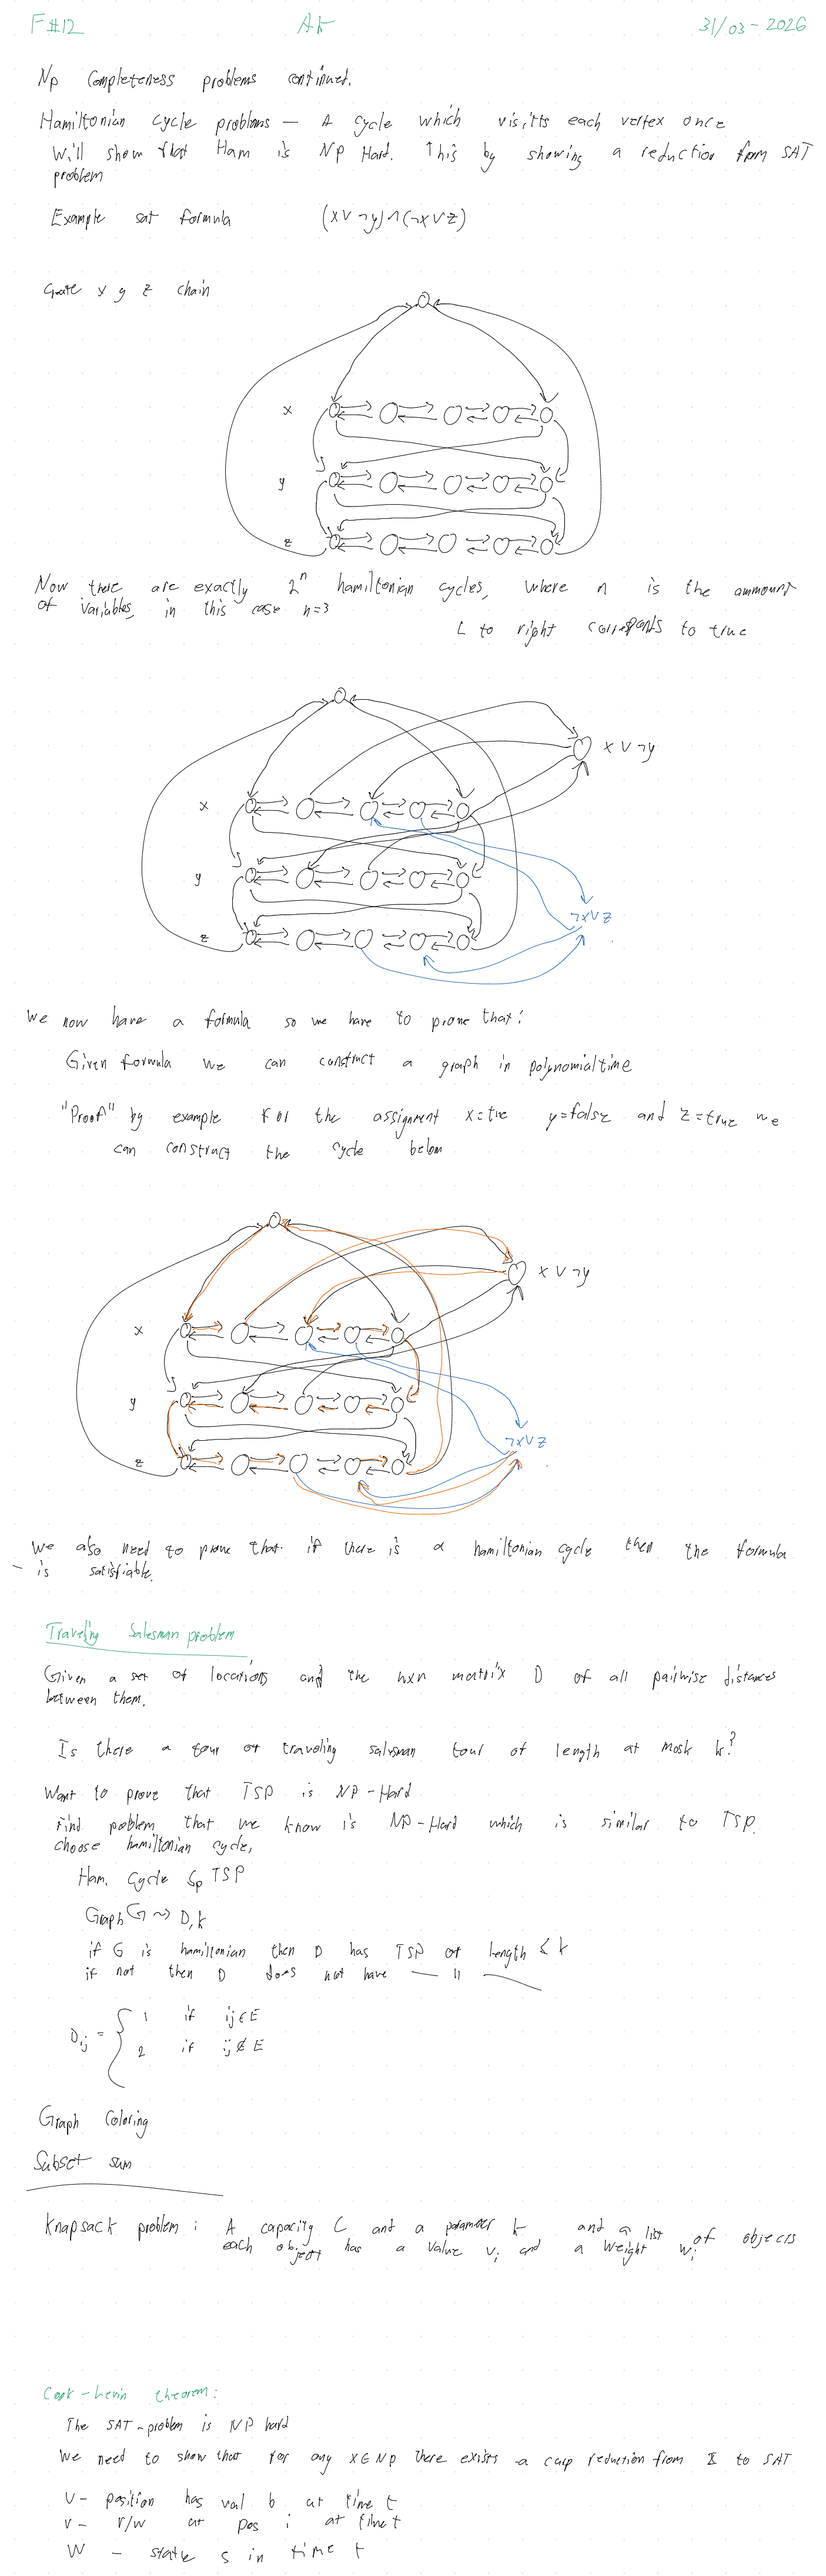 F#12 AK 31/03-2026
Np Completeness problems continued.
Hamiltonian Cycle problems — A cycle which visitts each vertex once
Will show that Ham is Np Hard. This by showing a reduction from SAT
problem
Example sat formula (x∨¬y)∧(¬x∨z)
x y z chain
x
y
z
Now there are exactly 2ⁿ hamiltonian cycles, where n is the ammount
of variables, in this case n=3
L to right corresponds to true
x∨¬y
x
y
¬x∨z
z
We now have a formula so we have to prove that:
Given formula we can construct a graph in polynomial time
"Proof" by example For the assignment x=true y=false and z=true we
can construct the cycle below
x∨¬y
x
y
¬x∨z
z
We also need to prove that if there is a hamiltonian cycle then the formula
- is satisfiable.
Traveling Salesman problem
Given a set of locations and the nxn matrix D of all pairwise distances
between them.
Is there a tour or traveling salesman tour of length at most k?
Want to prove that TSP is NP-Hard
Find problem that we know is NP-Hard which is similar to TSP.
choose hamiltonian cycle,
Ham. Cycle ≤p TSP
Graph G ~> D,k
if G is hamiltonian then D has TSP of length ≤ k
if not then D does not have — 11 —
Dij = { 1 if ij∈E
2 if ij∉E
Graph Coloring
Subset sum
Knapsack problem: A capacity C and a parameter k and a list of objects
each object has a value vi and a weight wi
Cook-Levin theorem:
The SAT-problem is NP hard
We need to show that for any X∈Np there exists a carp reduction from X to SAT
V- position has val b at time t
r- r/w at pos i at time t
W - state s in time t